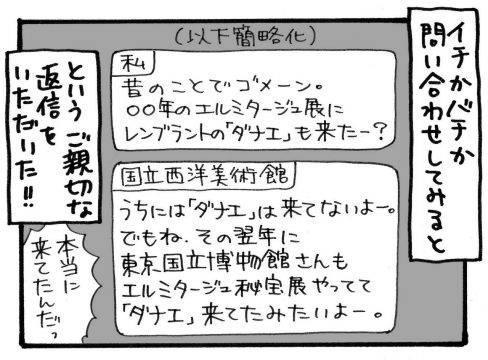 イチかバチか
問い合わせしてみると
(以下簡略化)
私
昔のことでゴメーン。
○○年のエルミタージュ展に
レンブラントの「ダナエ」も来たー?
国立西洋美術館
うちには「ダナエ」は来てないよー。
でもね、その翌年に
東京国立博物館さんも
エルミタージュ秘宝展やってて
「ダナエ」来てたみたいよー。
という ご親切な
返信を
いただいた!!
本当に
来てたんだっ